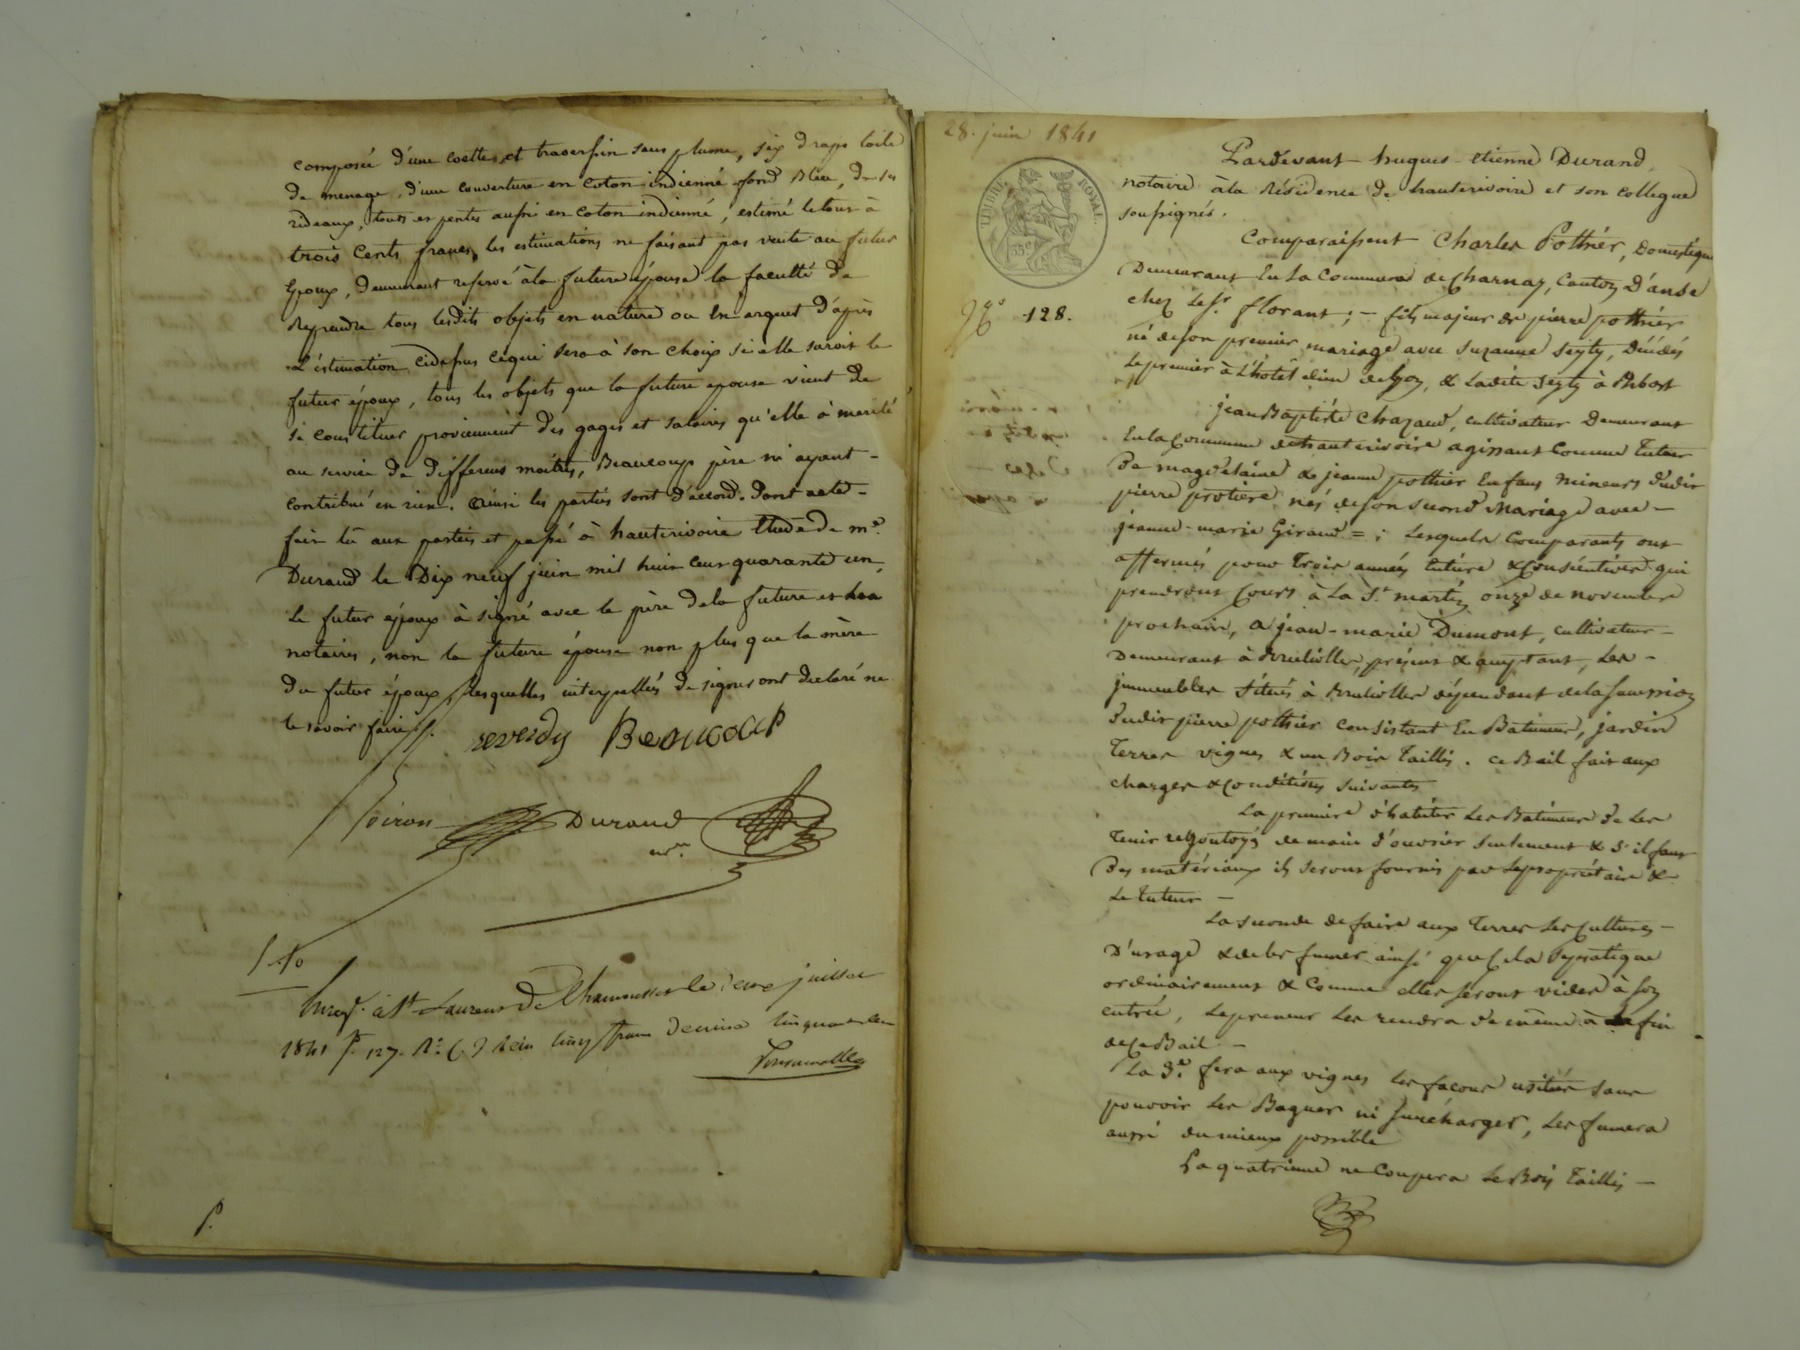 composée d'une coette et traversin sans plume, six draps toile
de menage, d'une couverture en coton indienné fond Bleu, de ses
rideaux, tours et pentes aussi en coton indienné, estimé le tout à
trois cents francs, les estimations ne faisant pas vente au futur
Epoux, demeurant reservé à la future épouse la faculté de
Reprendre tous lesdits objets en nature ou en argent d'après
L'éstimation cidessus cequi sera à son choix si elle survit le
futur époux, tous les objets que la future epouse vient de
se constituer proviennent des gages et salaires qu'elle à mérité
au service de differens maitres, Beaucoup père ni ayant -
contribué en rien. Ainsi les parties sont d'accord. dont acte -
fait lû aux parties et passé à hauterivoire Etude de me.
Durand le Dix neuf juin mil huit cent quarante un,
Le futur époux à signé avec le père dela future et les
notaires, non la future épouse non plus que la mère
du futur époux, lesquelles interpellées de signer ont declaré ne
le savoir faire.
reverdy Beaucoup
Durand
nre.
Enreg. à St Laurent de Chamousset le deux juillet
1841 f. 127. Ro. C. 9 Recu cinq francs decime cinquante cen
P.
28. juin 1841
TIMBRE ROYAL
35c
128.
Pardevant hugues-etienne Durand,
notaire àla Résidence de hauterivoire et son collegue
soussignés.
Comparaissent Charles Pothier, Domestique
Demeurant En La Commune de Charnay, Canton D'anse
chez Le Sr. florant ; - fils majeur de pierre pothier
né deson premier mariage avec suzanne Seyty, Décédés
Lepremier à L'hôtel dieu delyon, & Ladite Seyty à
jean Baptiste Chazaud, cultivateur Demeurant
En la Commune dehauterivoire agissant Comme Tuteur
De magdelaine & jeanne pothier Enfans mineurs dudit
pierre potière nés deson second Mariage avec -
jeanne-marie Giraud = ; Lesquels Comparants ont
affermés pour Trois années entière & Conséentives qui
prendront Cours à La St. martin onze de novembre
prochain, à jean-marie Dumont, cultivateur -
Demeurant à Brulliolles, présent & acceptant, Les -
jmmeubles sitúés à Brulliolles dépendant dela succession
dudit pierre pothier consistant En Batiment, jardin
Terres vignes & un Bois Taillis. ce Bail fait aux
charges & Conditions suivantes
La premiere d'habiter Les Batiments de Les
Tenir de main d'ouvrier seulement & s'il faut
Des matériaux ils seront fournis par Lepropriétaire &
Le tuteur -
La seconde de faire aux Terres Les Cultures -
D'usage & deles fumer ainsi que Cela sepratique
ordinairement & Comme elles seront vides à son
entrée, Lepreneur Les rendra de même à la fin
dece Bail -
La 3e. fera aux vignes Les façons usitées sans
pouvoir Les Baguer ni surcharger, Les fumera
aussi du mieux possible
La quatrieme ne Coupera Le Bois Taillis -